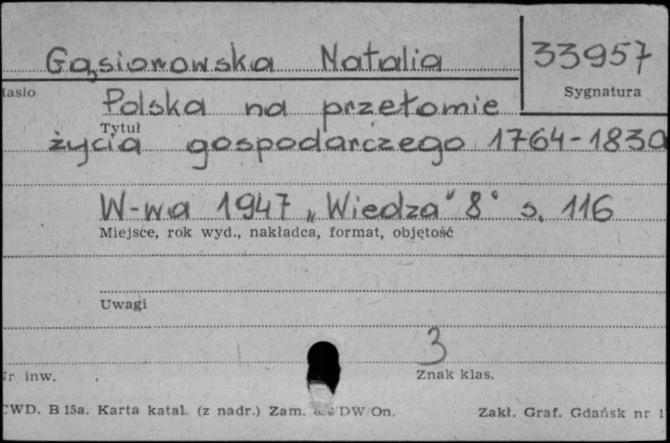 Gąsiorowska Natalia 33957
Hasło Sygnatura
Polska na przełomie
Tytuł
życia gospodarczego 1764-1830
W-wa 1947 „Wiedza" 8° s. 116
Miejsce, rok wyd., nakładca, format, objętość
Uwagi
3
Nr inw. Znak klas.
CWD. B 15a. Karta katal. (z nadr.) Zam. DW/On. Zakł. Graf. Gdańsk nr 1